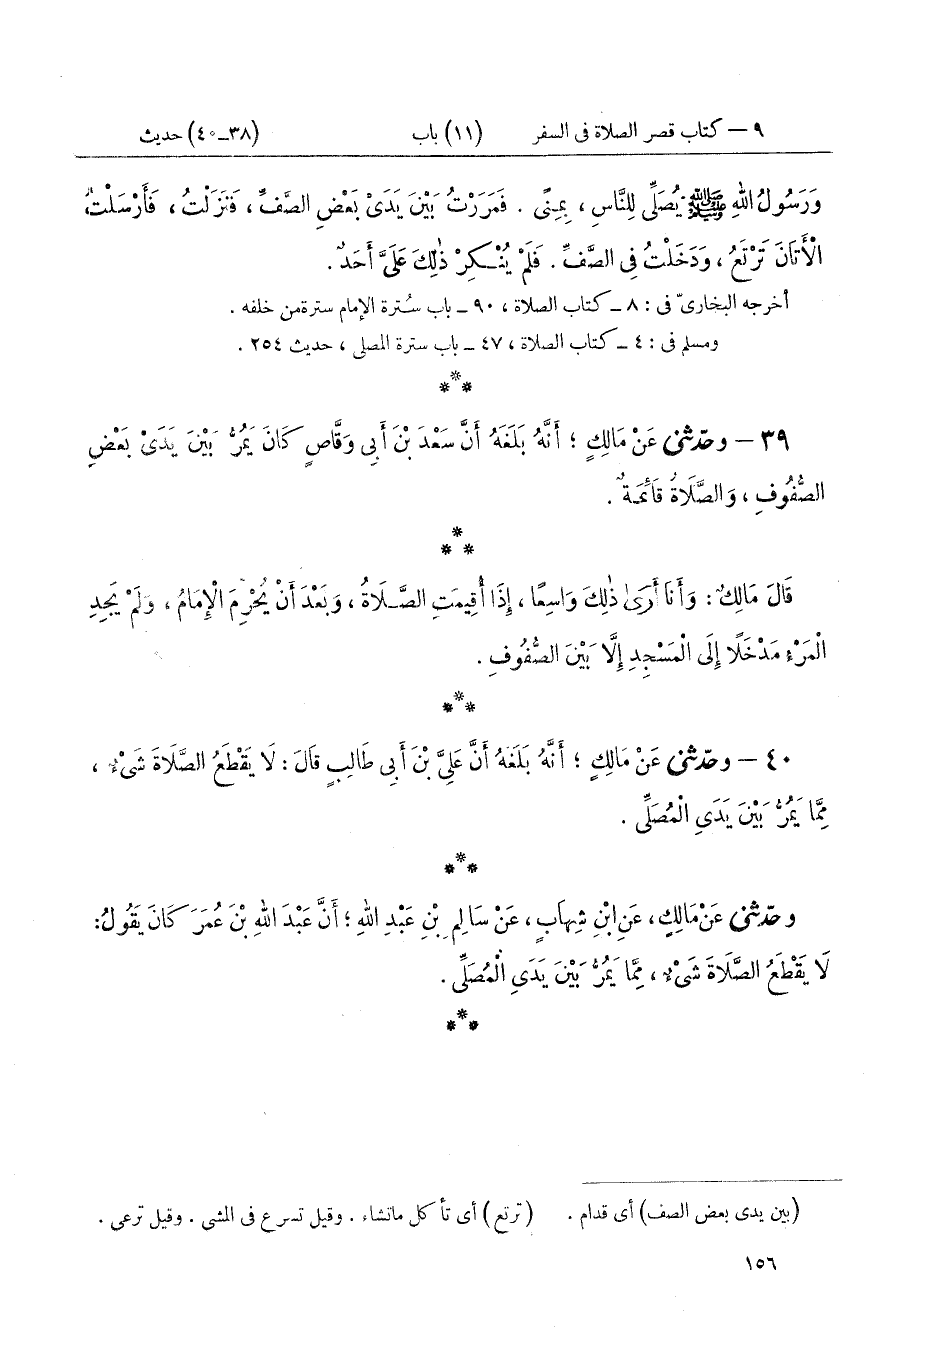 ٩ – كتاب قصر الصلاة فى السفر (١١) باب (٣٨ــ٤٠) حديث
وَرَسُولُ اللهِ ﷺ يُصَلِّى لِلنَّاسِ ، بِمِنًى . فَمَرَرْتُ بَيْنَ يَدَىْ بَعْضِ الصَّفِّ ، فَنَزَلْتُ ، فَأَرْسَلْتُ
الْأَتَانَ تَرْتَعُ ، وَدَخَلْتُ فِى الصَّفِّ . فَلَمْ يُنْكِرْ ذٰلِكَ عَلَىَّ أَحَدٌ .
أخرجه البخارىّ فى : ٨ ـ كتاب الصلاة ، ٩٠ ـ باب سُترة الإمام سترة من خلفه .
ومسلم فى : ٤ ـ كتاب الصلاة ، ٤٧ ـ باب سترة المصلى ، حديث ٢٥٤ .
***
٣٩ – وحدّثنى عَنْ مَالِكٍ ؛ أَنَّهُ بَلَغَهُ أَنَّ سَعْدَ بْنَ أَبِى وَقَّاصٍ كَانَ يَمُرُّ بَيْنَ يَدَىْ بَعْضِ
الصُّفُوفِ ، وَالصَّلَاةُ قَائِمَةٌ .
***
قَالَ مَالِكٌ : وَأَنَا أَرَى ذٰلِكَ وَاسِعًا ، إِذَا أُقِيمَتِ الصَّلَاةُ ، وَبَعْدَ أَنْ يُحْرِمَ الْإِمَامُ ، وَلَمْ يَجِدِ
الْمَرْءُ مَدْخَلًا إِلَى الْمَسْجِدِ إِلَّا بَيْنَ الصُّفُوفِ .
***
٤٠ – وحدّثنى عَنْ مَالِكٍ ؛ أَنَّهُ بَلَغَهُ أَنَّ عَلِىَّ بْنَ أَبِى طَالِبٍ قَالَ : لَا يَقْطَعُ الصَّلَاةَ شَىْءٌ ،
مِمَّا يَمُرُّ بَيْنَ يَدَىِ الْمُصَلِّى .
***
وحدّثنى عَنْ مَالِكٍ ، عَنِ ابْنِ شِهَابٍ ، عَنْ سَالِمِ بْنِ عَبْدِ اللهِ ؛ أَنَّ عَبْدَ اللهِ بْنَ عُمَرَ كَانَ يَقُولُ :
لَا يَقْطَعُ الصَّلَاةَ شَىْءٌ ، مِمَّا يَمُرُّ بَيْنَ يَدَىِ الْمُصَلِّى .
***
(بين يدى بعض الصف) أى قدام . (ترتع) أى تأكل ماتشاء . وقيل تسرع فى المشى . وقيل ترعى .
١٥٦